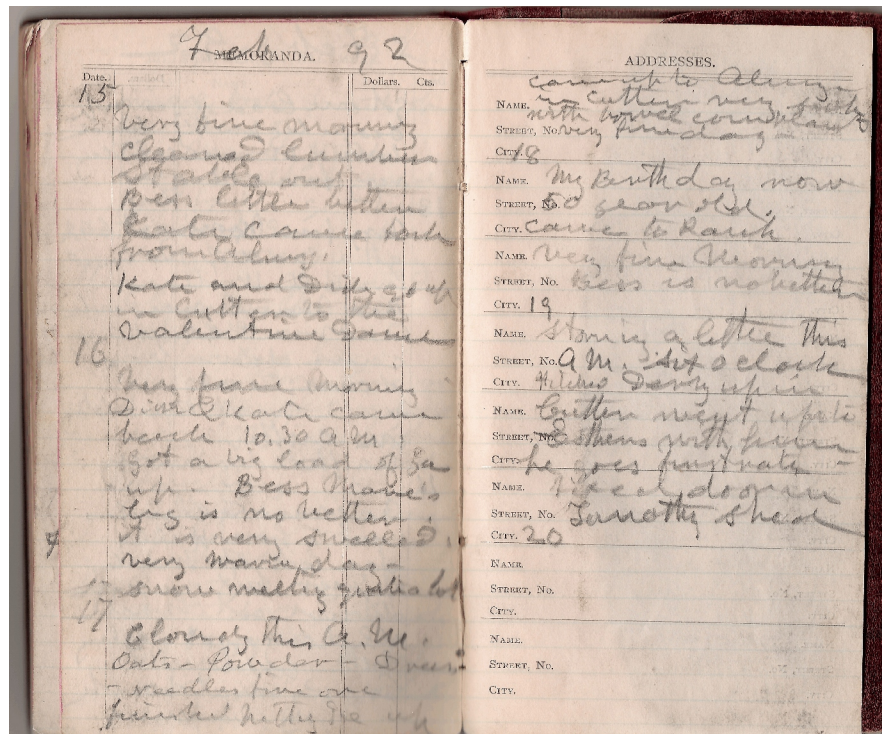 Feb 92
MEMORANDA.
Date. Dollars. Cts.
15
very fine morning
cleaned lumber
stable out.
Bess little better
Kate came back
from
Kate and Dide go up
in Cutter to the
Valentine Dance
16
Very fine morning
& Kate came
back 10.30 A.M.
Got a big load of
up. Bess Mare's
leg is no better.
it is very swelled.
very warm day -
snow melting quite a lot
17
Cloudy this A.M.
Oats - Powder -
- needles fine one
finished up
ADDRESSES.
came up to
NAME. in Cutter very
with bowel complaint
STREET, NO. very fine day
CITY. 18
NAME. My Birthday now
STREET, NO. 50 year old.
CITY. Came to Ranch.
NAME. Very fine Morning
STREET, NO. Bess is no better
CITY. 19
NAME. storming a little this
STREET, NO. A.M. six oclock
CITY. up in
NAME. Cutter went up to
STREET, NO. with
CITY. he goes first rate -
NAME. Fixed door in
STREET, NO. Timothy Shed
CITY. 20
NAME.
STREET, NO.
CITY.
NAME.
STREET, NO.
CITY.